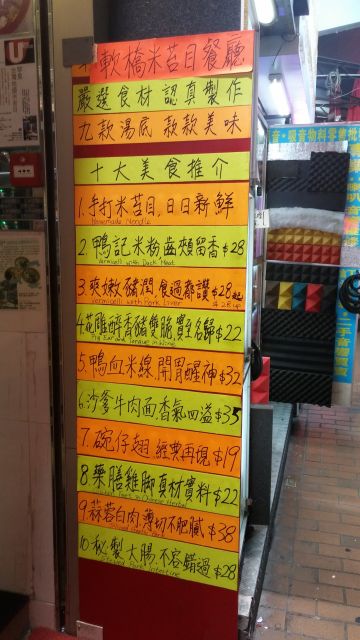 軟橋米苔目餐廳
嚴選食材 認真製作
九款湯底 款款美味
十大美食推介
1.手打米苔目,日日新鮮
Homemade Noodle
2.鴨記米粉齒頰留香$28
Vermicelli with Duck Meat
3.爽嫩豬潤,食過都讚$28起
Vermicelli with Pork Liver
4.花雕醉香豬雙脆,實至名歸$22
Pig Ear and Tongue in Wine
5.鴨血米線,開胃醒神$32
6.沙爹牛肉面,香氣四溢$35
7.碗仔翅,經典再現$19
8.藥膳雞脚真材實料$22
9.蒜蓉白肉,薄切不肥膩$38
10.秘製大腸,不容錯過$28
音·吸音物料零售批